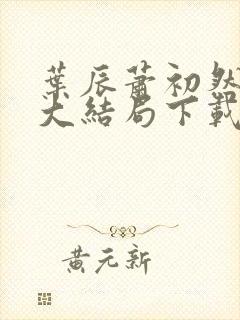 葉辰蕭初然
大結局下載
黃元新